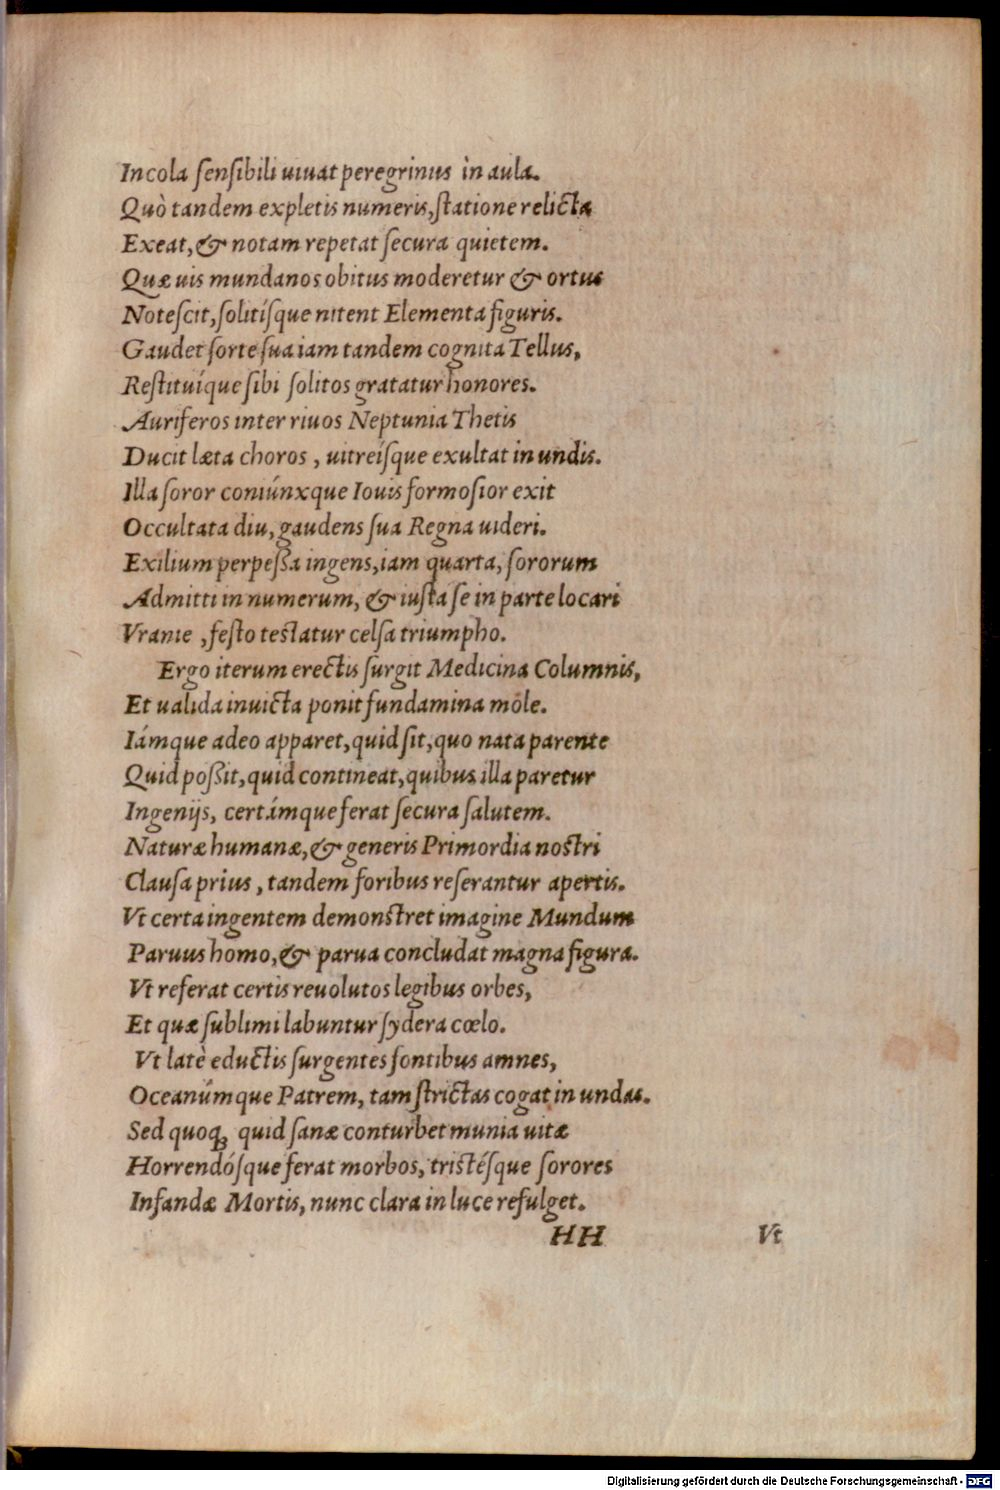 Incola ſenſibili uiuat peregrinus in aula.
Quò tandem expletis numeris, ſtatione relicta
Exeat, & notam repetat ſecura quietem.
Quæ uis mundanos obitus moderetur & ortus
Noteſcit, ſolitíſque nitent Elementa figuris.
Gaudet ſorte ſua iam tandem cognita Tellus,
Reſtituíque ſibi ſolitos gratatur honores.
Auriferos inter riuos Neptunia Thetis
Ducit læta choros, uitreíſque exultat in undis.
Illa ſoror coniúnxque Iouis formoſior exit
Occultata diu, gaudens ſua Regna uideri.
Exilium perpeſſa ingens, iam quarta, ſororum
Admitti in numerum, & iuſta ſe in parte locari
Vranie, feſto teſtatur celſa triumpho.
Ergo iterum erectis ſurgit Medicina Columnis,
Et ualida inuicta ponit fundamina mole.
Iámque adeo apparet, quid ſit, quo nata parente
Quid poſſit, quid contineat, quibus illa paretur
Ingenijs, certámque ferat ſecura ſalutem.
Naturæ humanæ, & generis Primordia noſtri
Clauſa prius, tandem foribus reſerantur apertis.
Vt certa ingentem demonſtret imagine Mundum
Paruus homo, & parua concludat magna figura.
Vt referat certis reuolutos legibus orbes,
Et quæ ſublimi labuntur ſydera cœlo.
Vt latè eductis ſurgentes fontibus amnes,
Oceanúmque Patrem, tam ſtrictas cogat in undas.
Sed quoqꝫ quid ſanæ conturbet munia uitæ
Horrendóſque ferat morbos, triſtéſque ſorores
Infandæ Mortis, nunc clara in luce refulget.
HH Vt
Digitalisierung gefördert durch die Deutsche Forschungsgemeinschaft - DFG